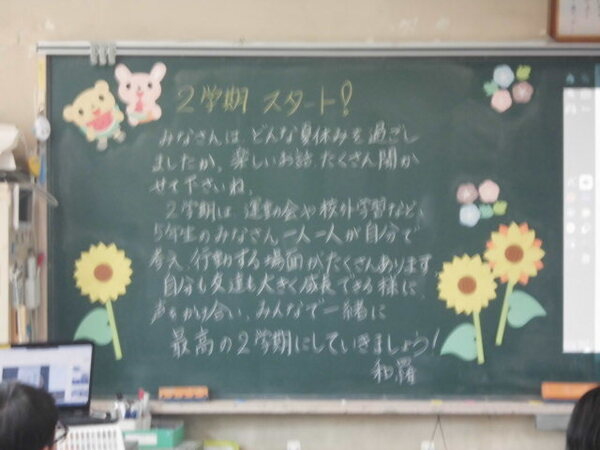 2学期 スタート!
みなさんは、どんな夏休みを過ごし
ましたか。楽しいお話 たくさん聞か
せて下さいね。
2学期は、運動会や校外学習など、
5年生のみなさん一人一人が自分で
考え、行動する場面がたくさんあります。
自分も友達も大きく成長できる様に、
声をかけ合い、みんなで一緒に
最高の2学期にしていきましょう!